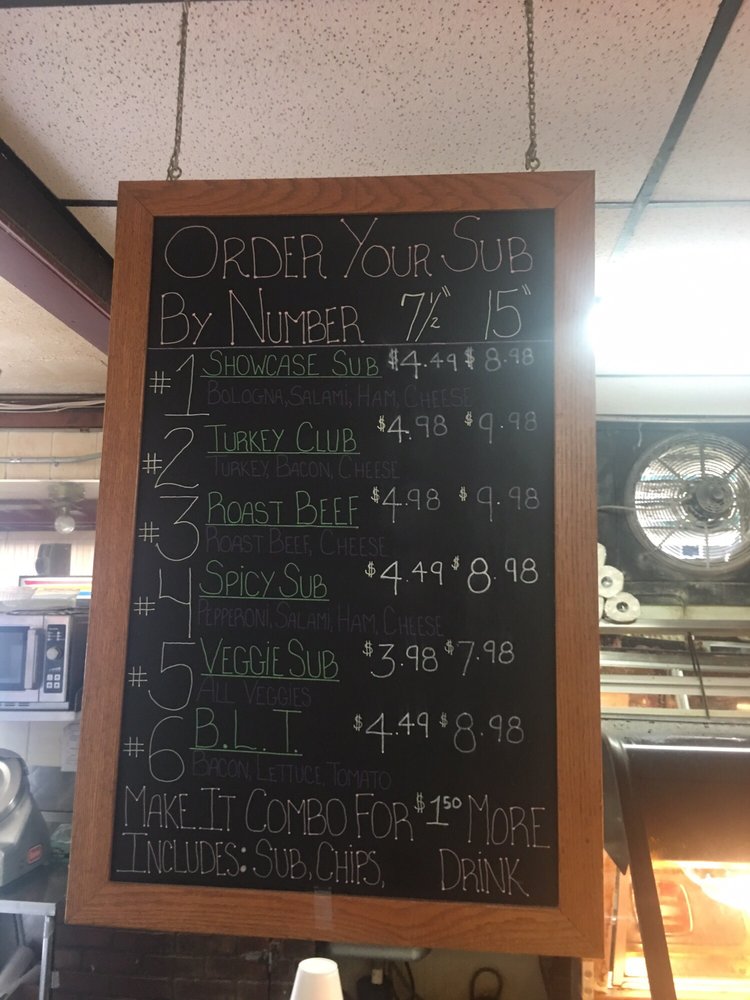 ORDER YOUR SUB
BY NUMBER 7½" 15"
#1 SHOWCASE SUB $4.49 $8.98
BOLOGNA, SALAMI, HAM, CHEESE
#2 TURKEY CLUB $4.98 $9.98
TURKEY, BACON, CHEESE
#3 ROAST BEEF $4.98 $9.98
ROAST BEEF, CHEESE
#4 SPICY SUB $4.49 $8.98
PEPPERONI, SALAMI, HAM, CHEESE
#5 VEGGIE SUB $3.98 $7.98
ALL VEGGIES
#6 B.L.T. $4.49 $8.98
BACON, LETTUCE, TOMATO
MAKE IT COMBO FOR $1.50 MORE
INCLUDES: SUB, CHIPS, DRINK